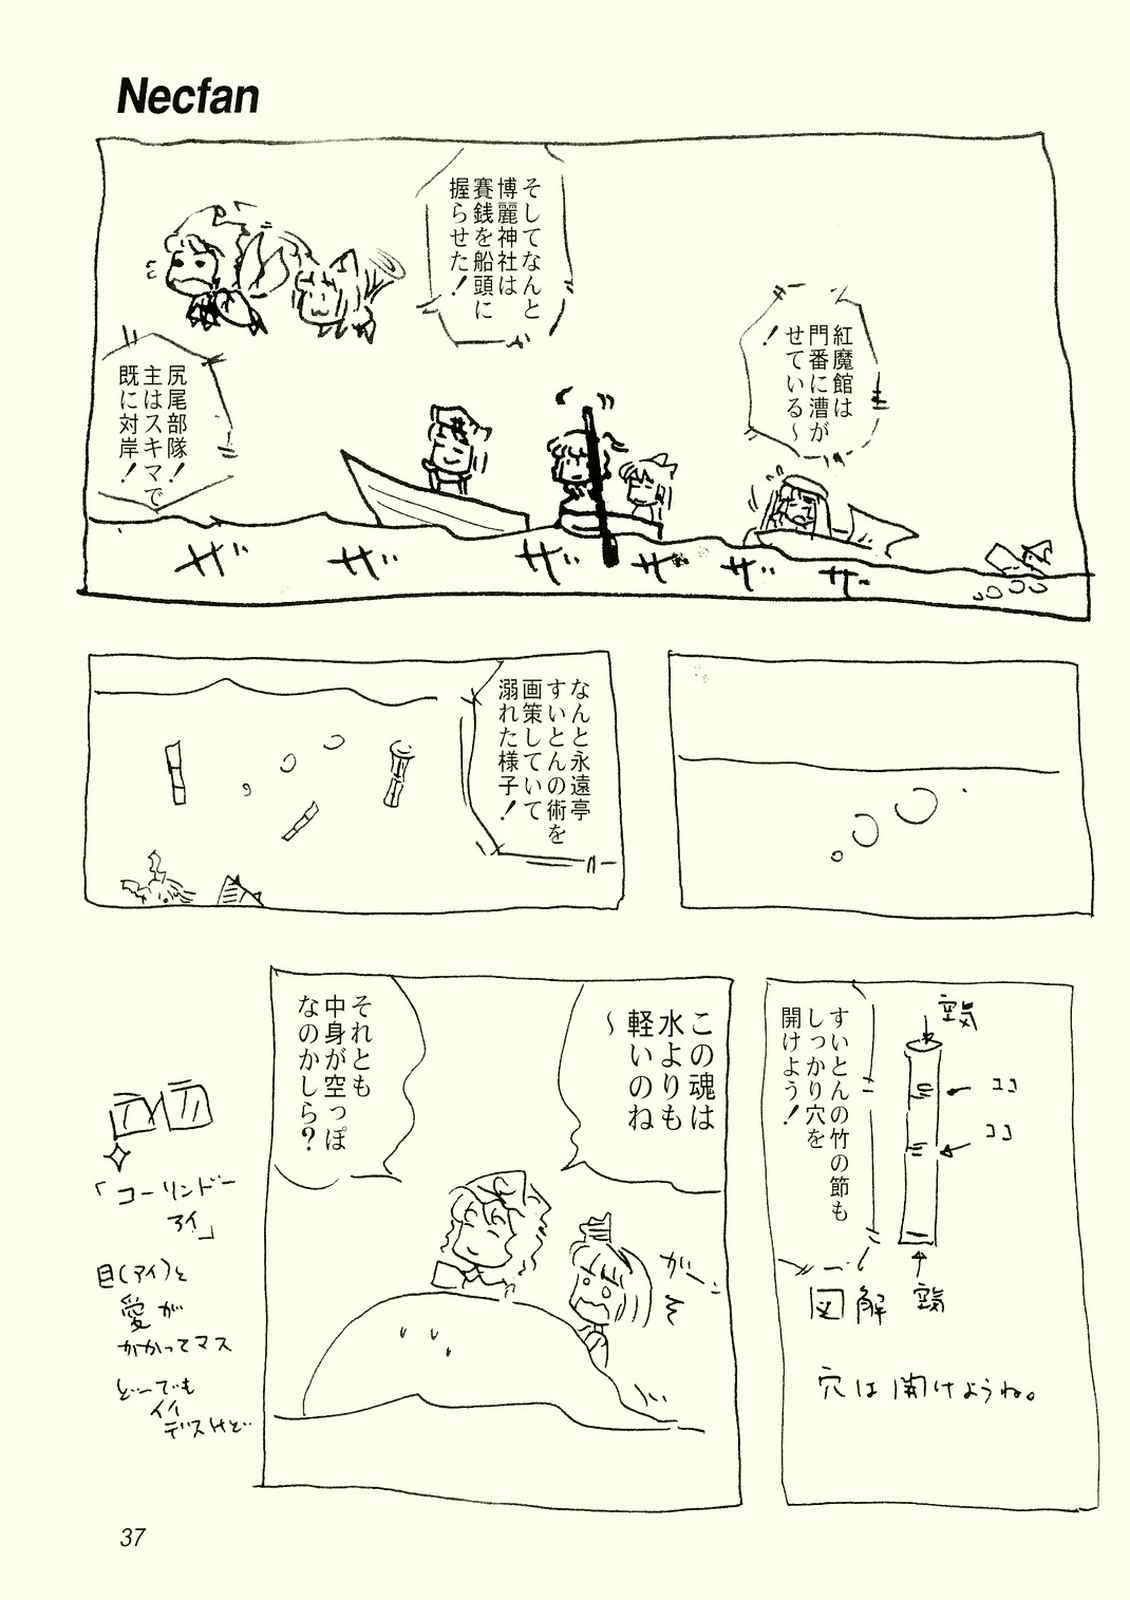 Necfan
紅魔館は
門番に漕が
せている〜
！
そしてなんと
博麗神社は
賽銭を船頭に
握らせた！
尻尾部隊！
主はスキマで
既に対岸！
ザ ザ ザ ザ ザ ザ
なんと永遠亭
すいとんの術を
画策していて
溺れた様子！
すいとんの竹の節も
しっかり穴を
開けよう！
空気
ココ
ココ
空気
図解
穴は開けようね。
この魂は
水よりも
軽いのね
〜
それとも
中身が空っぽ
なのかしら？
がーん
「コーリンドー
アイ」
目(アイ)と
愛が
かかってマス
どーでも
イイ
デスけど
37